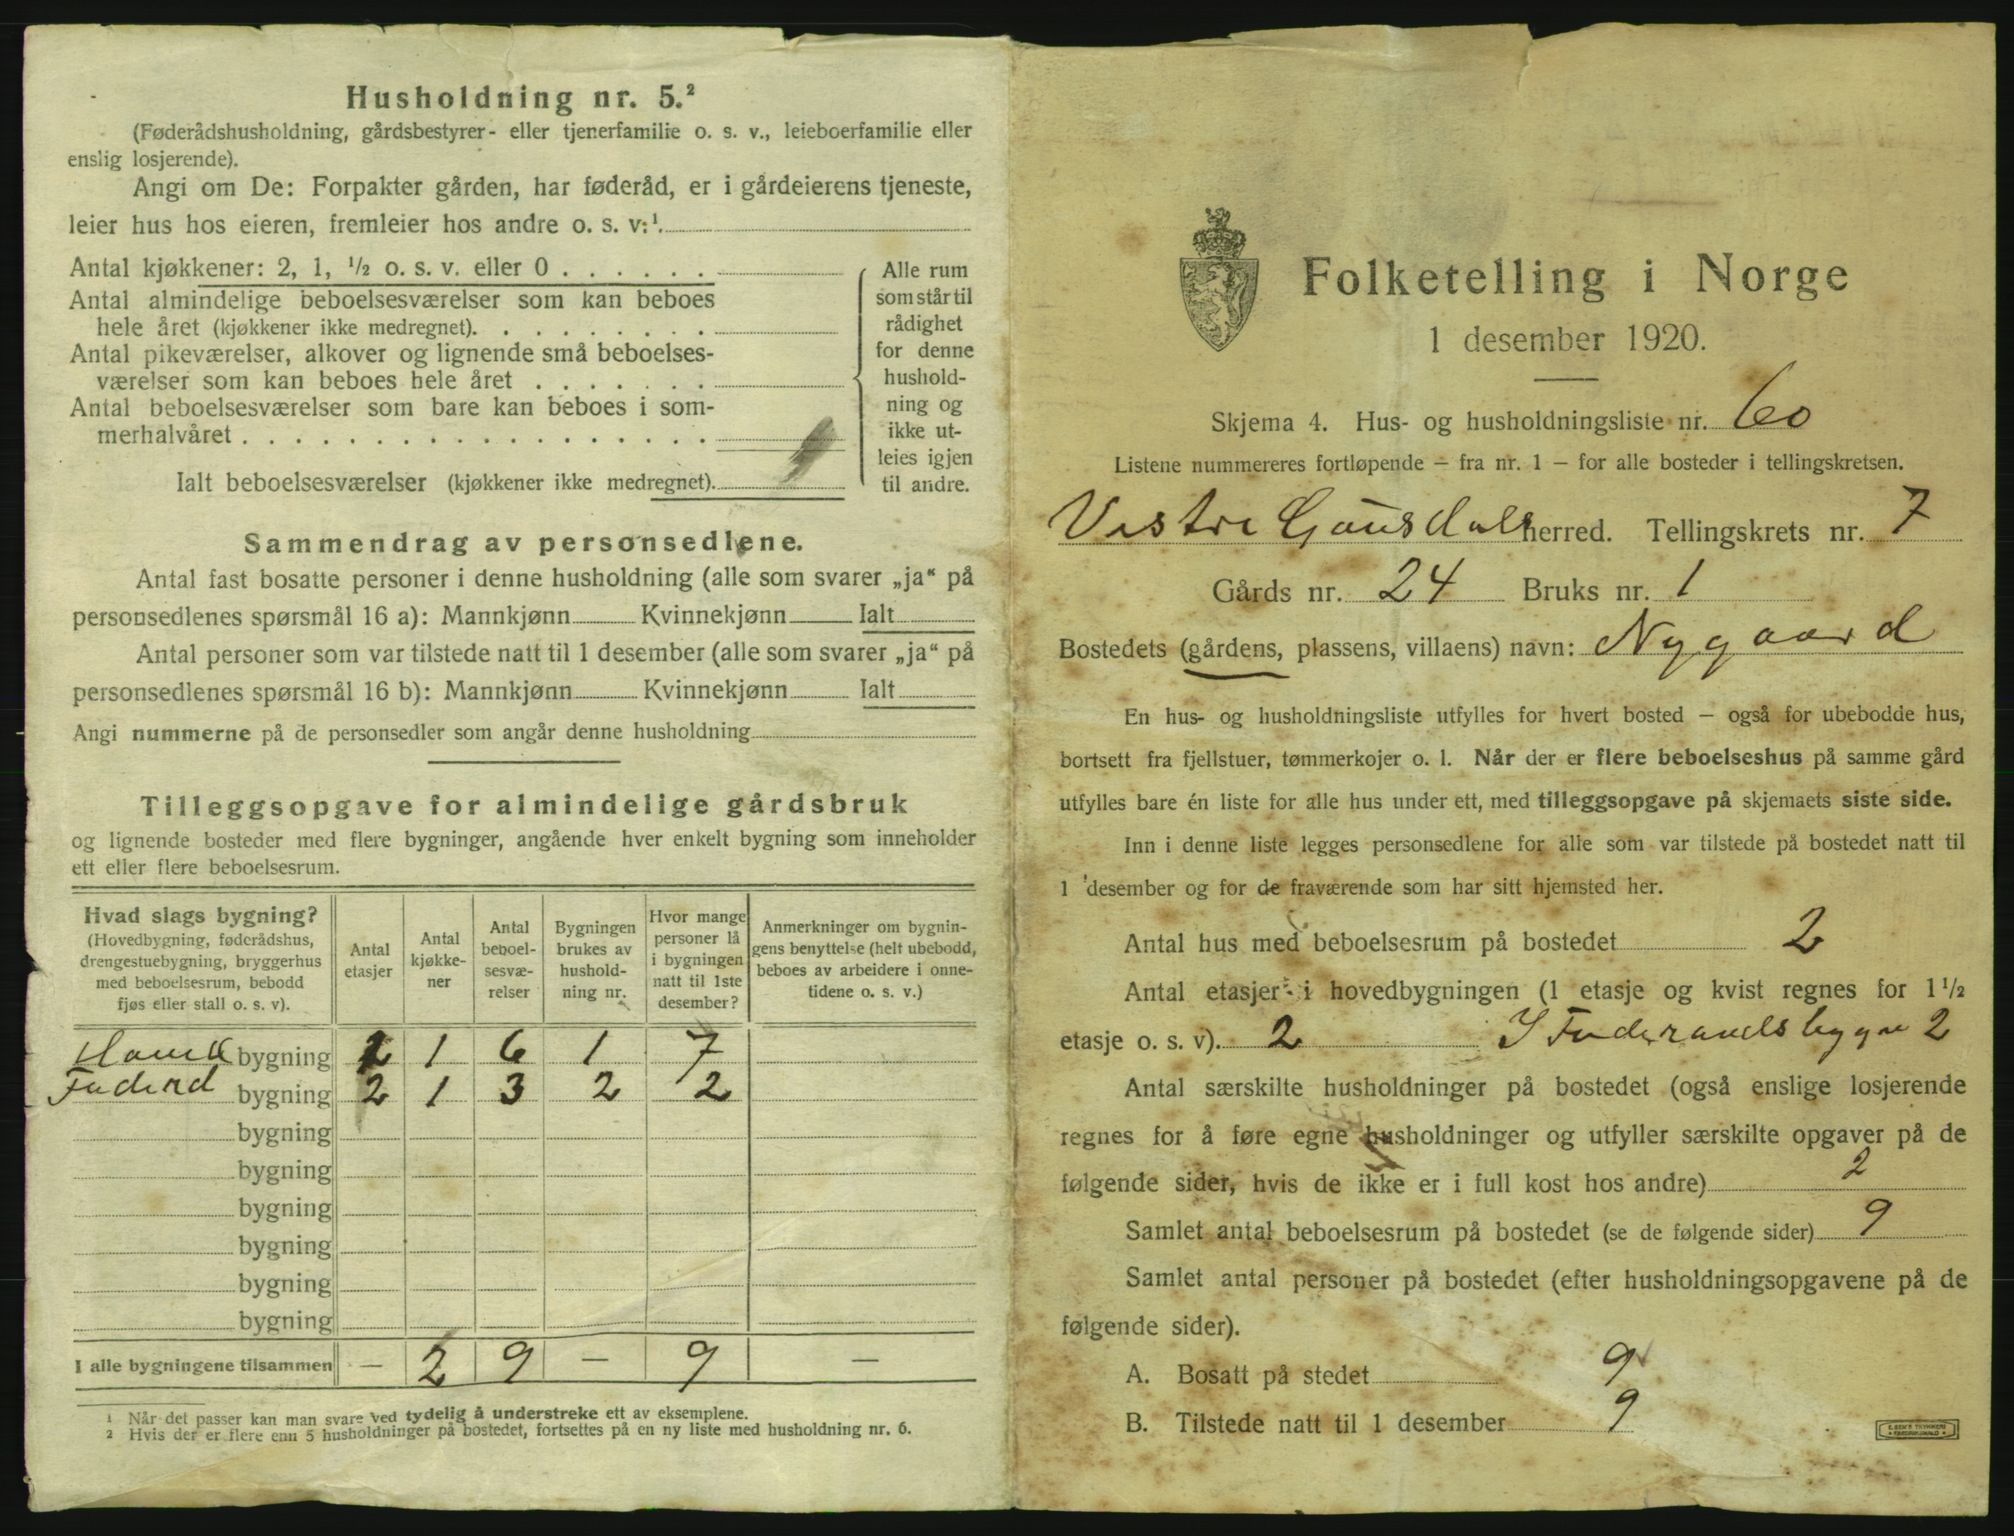 Husholdning nr. 5.²
(Føderådshusholdning, gårdsbestyrer- eller tjenerfamilie o. s. v., leieboerfamilie eller
enslig losjerende).
Angi om De: Forpakter gården, har føderåd, er i gårdeierens tjeneste,
leier hus hos eieren, fremleier hos andre o. s. v:¹.
Antal kjøkkener: 2, 1, ½ o. s. v. eller 0 . . . . . .
Antal almindelige beboelsesværelser som kan beboes
hele året (kjøkkener ikke medregnet). . . . . . . . .
Antal pikeværelser, alkover og lignende små beboelses-
værelser som kan beboes hele året . . . . . . .
Antal beboelsesværelser som bare kan beboes i som-
merhalvåret . . . . . . . . . . . . . . . . . .
Ialt beboelsesværelser (kjøkkener ikke medregnet).
Alle rum
som står til
rådighet
for denne
hushold-
ning og
ikke ut-
leies igjen
til andre.
Sammendrag av personsedlene.
Antal fast bosatte personer i denne husholdning (alle som svarer „ja“ på
personsedlenes spørsmål 16 a): Mannkjønn Kvinnekjønn Ialt
Antal personer som var tilstede natt til 1 desember (alle som svarer „ja“ på
personsedlenes spørsmål 16 b): Mannkjønn Kvinnekjønn Ialt
Angi nummerne på de personsedler som angår denne husholdning
Tilleggsopgave for almindelige gårdsbruk
og lignende bosteder med flere bygninger, angående hver enkelt bygning som inneholder
ett eller flere beboelsesrum.
Hvad slags bygning?
(Hovedbygning, føderådshus,
drengestuebygning, bryggerhus
med beboelsesrum, bebodd
fjøs eller stall o. s. v).
Antal
etasjer
Antal
kjøkke-
ner
Antal
beboel-
sesvæ-
relser
Bygningen
brukes av
hushold-
ning nr.
Hvor mange
personer lå
i bygningen
natt til 1ste
desember?
Anmerkninger om bygnin-
gens benyttelse (helt ubebodd,
beboes av arbeidere i onne-
tidene o. s. v.)
bygning 2 1 6 1 7
Føderd bygning 2 1 3 2 2
bygning
bygning
bygning
bygning
bygning
bygning
I alle bygningene tilsammen — 2 9 — 9 —
¹ Når det passer kan man svare ved tydelig å understreke ett av eksemplene.
² Hvis der er flere enn 5 husholdninger på bostedet, fortsettes på en ny liste med husholdning nr. 6.
Folketelling i Norge
1 desember 1920.
Skjema 4. Hus- og husholdningsliste nr. 60
Listene nummereres fortløpende — fra nr. 1 — for alle bosteder i tellingskretsen.
Vestre Gausdals herred. Tellingskrets nr. 7
Gårds nr. 24 Bruks nr. 1
Bostedets (gårdens, plassens, villaens) navn: Nygaard
En hus- og husholdningsliste utfylles for hvert bosted — også for ubebodde hus,
bortsett fra fjellstuer, tømmerkojer o. l. Når der er flere beboelseshus på samme gård
utfylles bare én liste for alle hus under ett, med tilleggsopgave på skjemaets siste side.
Inn i denne liste legges personsedlene for alle som var tilstede på bostedet natt til
1 desember og for de fraværende som har sitt hjemsted her.
Antal hus med beboelsesrum på bostedet 2
Antal etasjer i hovedbygningen (1 etasje og kvist regnes for 1½
etasje o. s. v). 2 I Føderaadsbygn 2
Antal særskilte husholdninger på bostedet (også enslige losjerende
regnes for å føre egne husholdninger og utfyller særskilte opgaver på de
følgende sider, hvis de ikke er i full kost hos andre) 2
Samlet antal beboelsesrum på bostedet (se de følgende sider) 9
Samlet antal personer på bostedet (efter husholdningsopgavene på de
følgende sider).
A. Bosatt på stedet 9
B. Tilstede natt til 1 desember 9